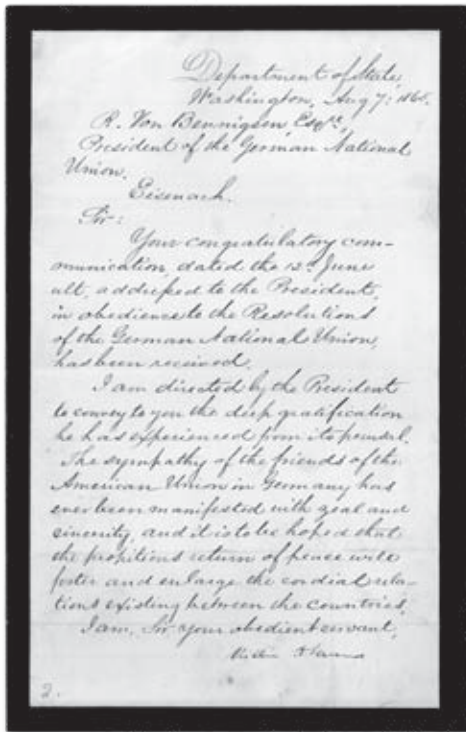 Department of State
Washington, Aug 7: 1865.
R. Von Bennigsen, Esqre,
President of the German National
Union.
Eisenach.
Sir:
Your congratulatory com-
munication, dated the 12th June
ult, addressed to the President,
in obedience to the Resolutions
of the German National Union,
has been received.
I am directed by the President
to convey to you the deep gratification
he has experienced from its perusal.
The sympathy of the friends of the
American Union in Germany has
ever been manifested with zeal and
sincerity, and it is to be hoped that
the propitious return of peace will
foster and enlarge the cordial rela-
tions existing between the countries.
I am, Sir, your obedient servant,
2.